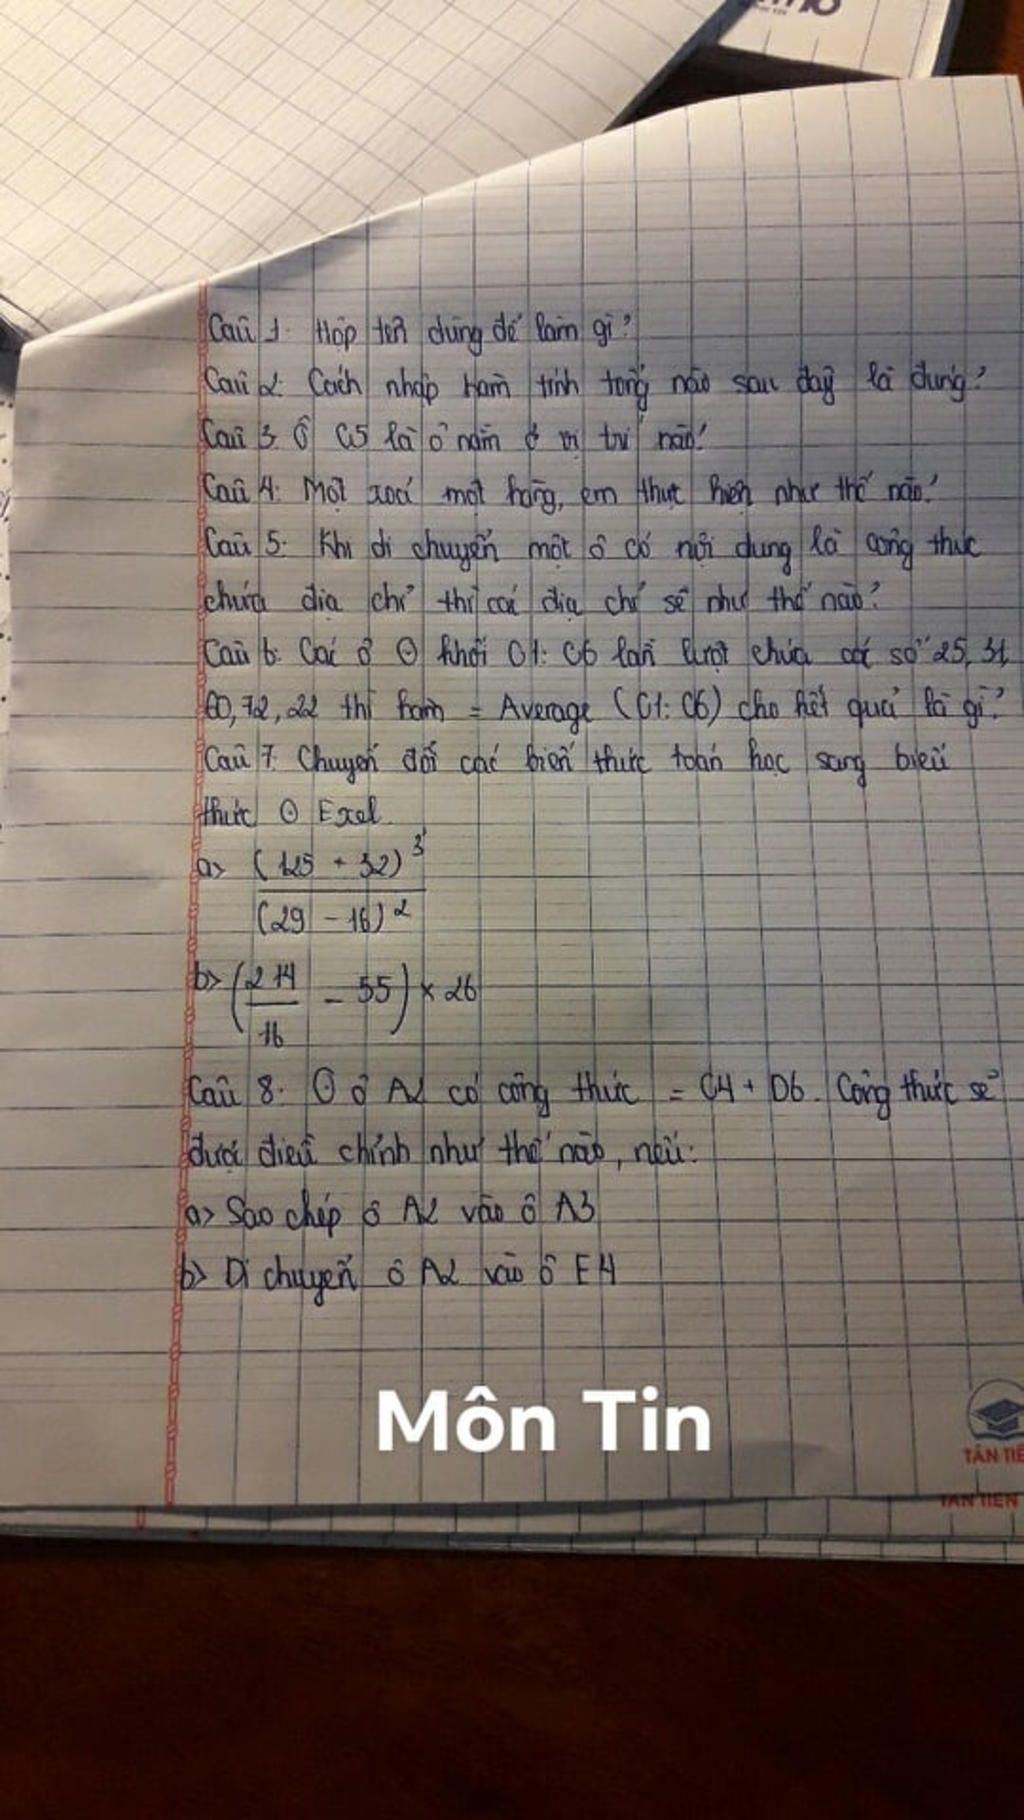 Câu 1: Hộp tên dùng để làm gì?
Câu 2: Cách nhập hàm tính tổng nào sau đây là đúng?
Câu 3: Ô G5 là ô nằm ở vị trí nào?
Câu 4: Một xoá một hàng, em thực hiện như thế nào?
Câu 5: Khi di chuyển một ô có nội dung là công thức
chứa địa chỉ thì các địa chỉ sẽ như thế nào?
Câu 6: Các ô Ở khối C1: C6 lần lượt chứa các số 25, 31,
60, 72, 22 thì hàm = Average (C1: C6) cho kết quả là gì?
Câu 7: Chuyển đổi các biến thức toán học sang biểu
thức Ở Exel.
a> (125 + 32)³
(29 - 16)²
b> (214 - 55) × 26
16
Câu 8: Ở ô A2 có công thức = C4 + D6. Công thức sẽ
được điều chỉnh như thế nào, nếu:
a> Sao chép ô A2 vào ô A3
b> Di chuyển ô A2 vào ô E4
Môn Tin
TÂN TIẾ
TÂN TIẾN